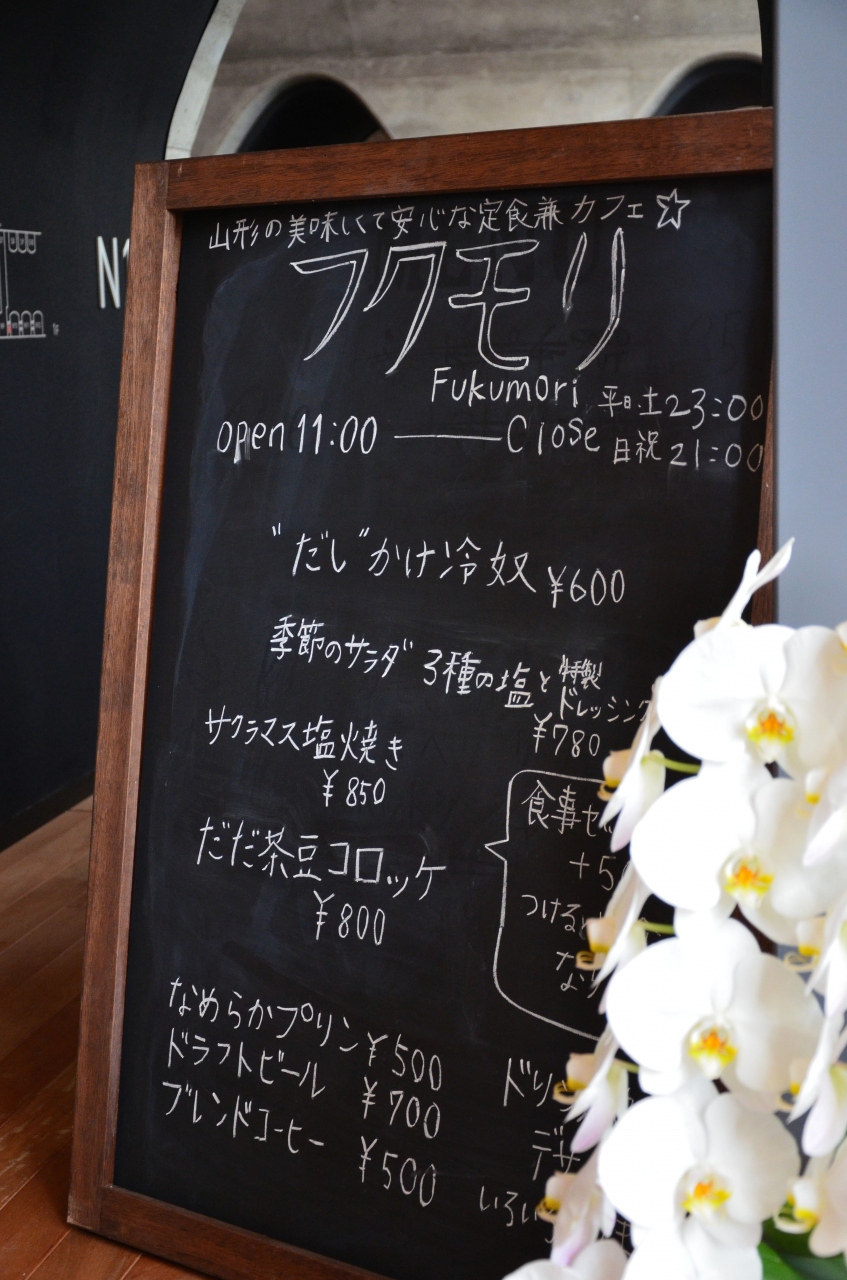 山形の美味しくて安心な定食兼カフェ☆
フクモリ
Fukumori
平日土23:00
open 11:00 — Close
日祝21:00
"だし"かけ冷奴 ¥600
季節のサラダ 3種の塩と特製
ドレッシング
¥780
サクラマス塩焼き
¥850
食事セッ
+5
つける
だだ茶豆コロッケ
¥800
なり
なめらかプリン ¥500
ドラフトビール ¥700
ブレンドコーヒー ¥500
ドリ
デザ
いろい
N1
1F